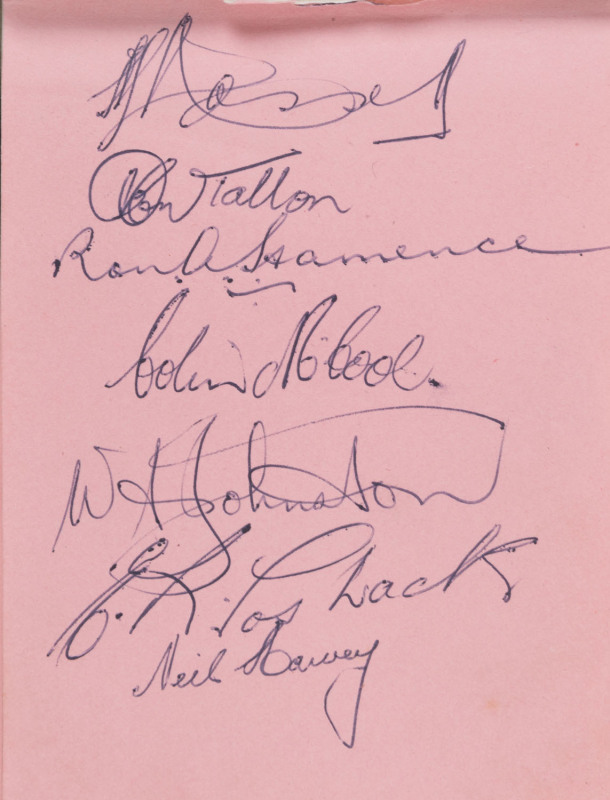 Don Tallon
Ron. A. Hamence
Colin McCool.
W A Johnston
E. R. Toshack
Neil Harvey